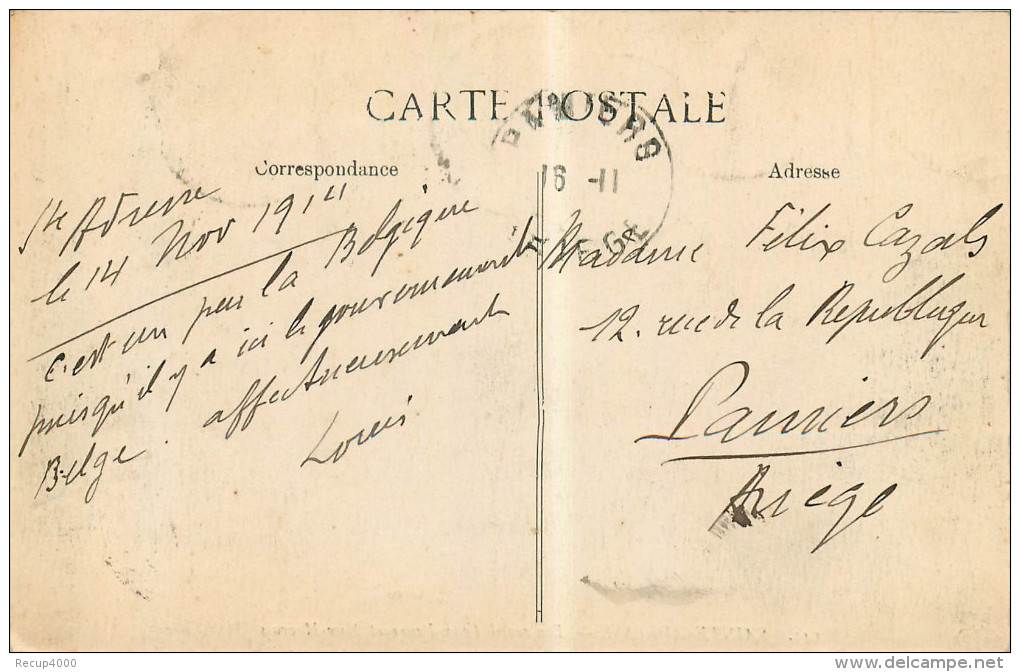 CARTE POSTALE
Correspondance
Adresse
PAMIERS
16 -11
Ste Adresse
le 14 Nov 1914
c'est un peu la Belgique
puisqu'il y a ici le gouvernement
Belge. affectueusement
Louis
Madame Félix Cazals
12. rue de la République
Pamiers
Ariège
Recup4000
www.delcampe.net